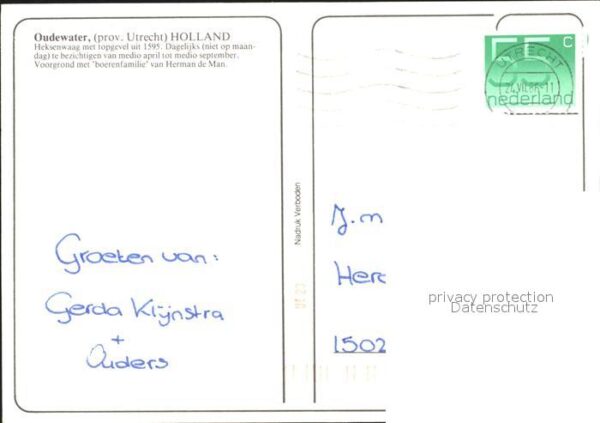 Oudewater, (prov. Utrecht) HOLLAND
Heksenwaag met topgevel uit 1595. Dagelijks (niet op maan-
dag) te bezichtigen van medio april tot medio september.
Voorgrond met 'boerenfamilie' van Herman de Man.
Groeten van:
Gerda Klijnstra
+
Ouders
Nadruk Verboden
55 C
nederland
UTRECHT
J.m
Herc
1502
privacy protection
Datenschutz